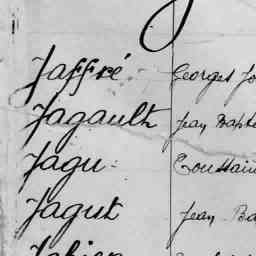 Jaffré Georges Jo
Jagault Jean Bapte
Jagu Toussain
Jagut Jean Ba